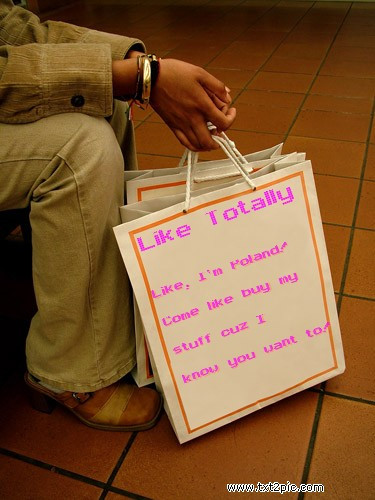 Like Totally
Like, I'm Poland!
Come like buy my
stuff cuz I
know you want to!
www.txt2pic.com